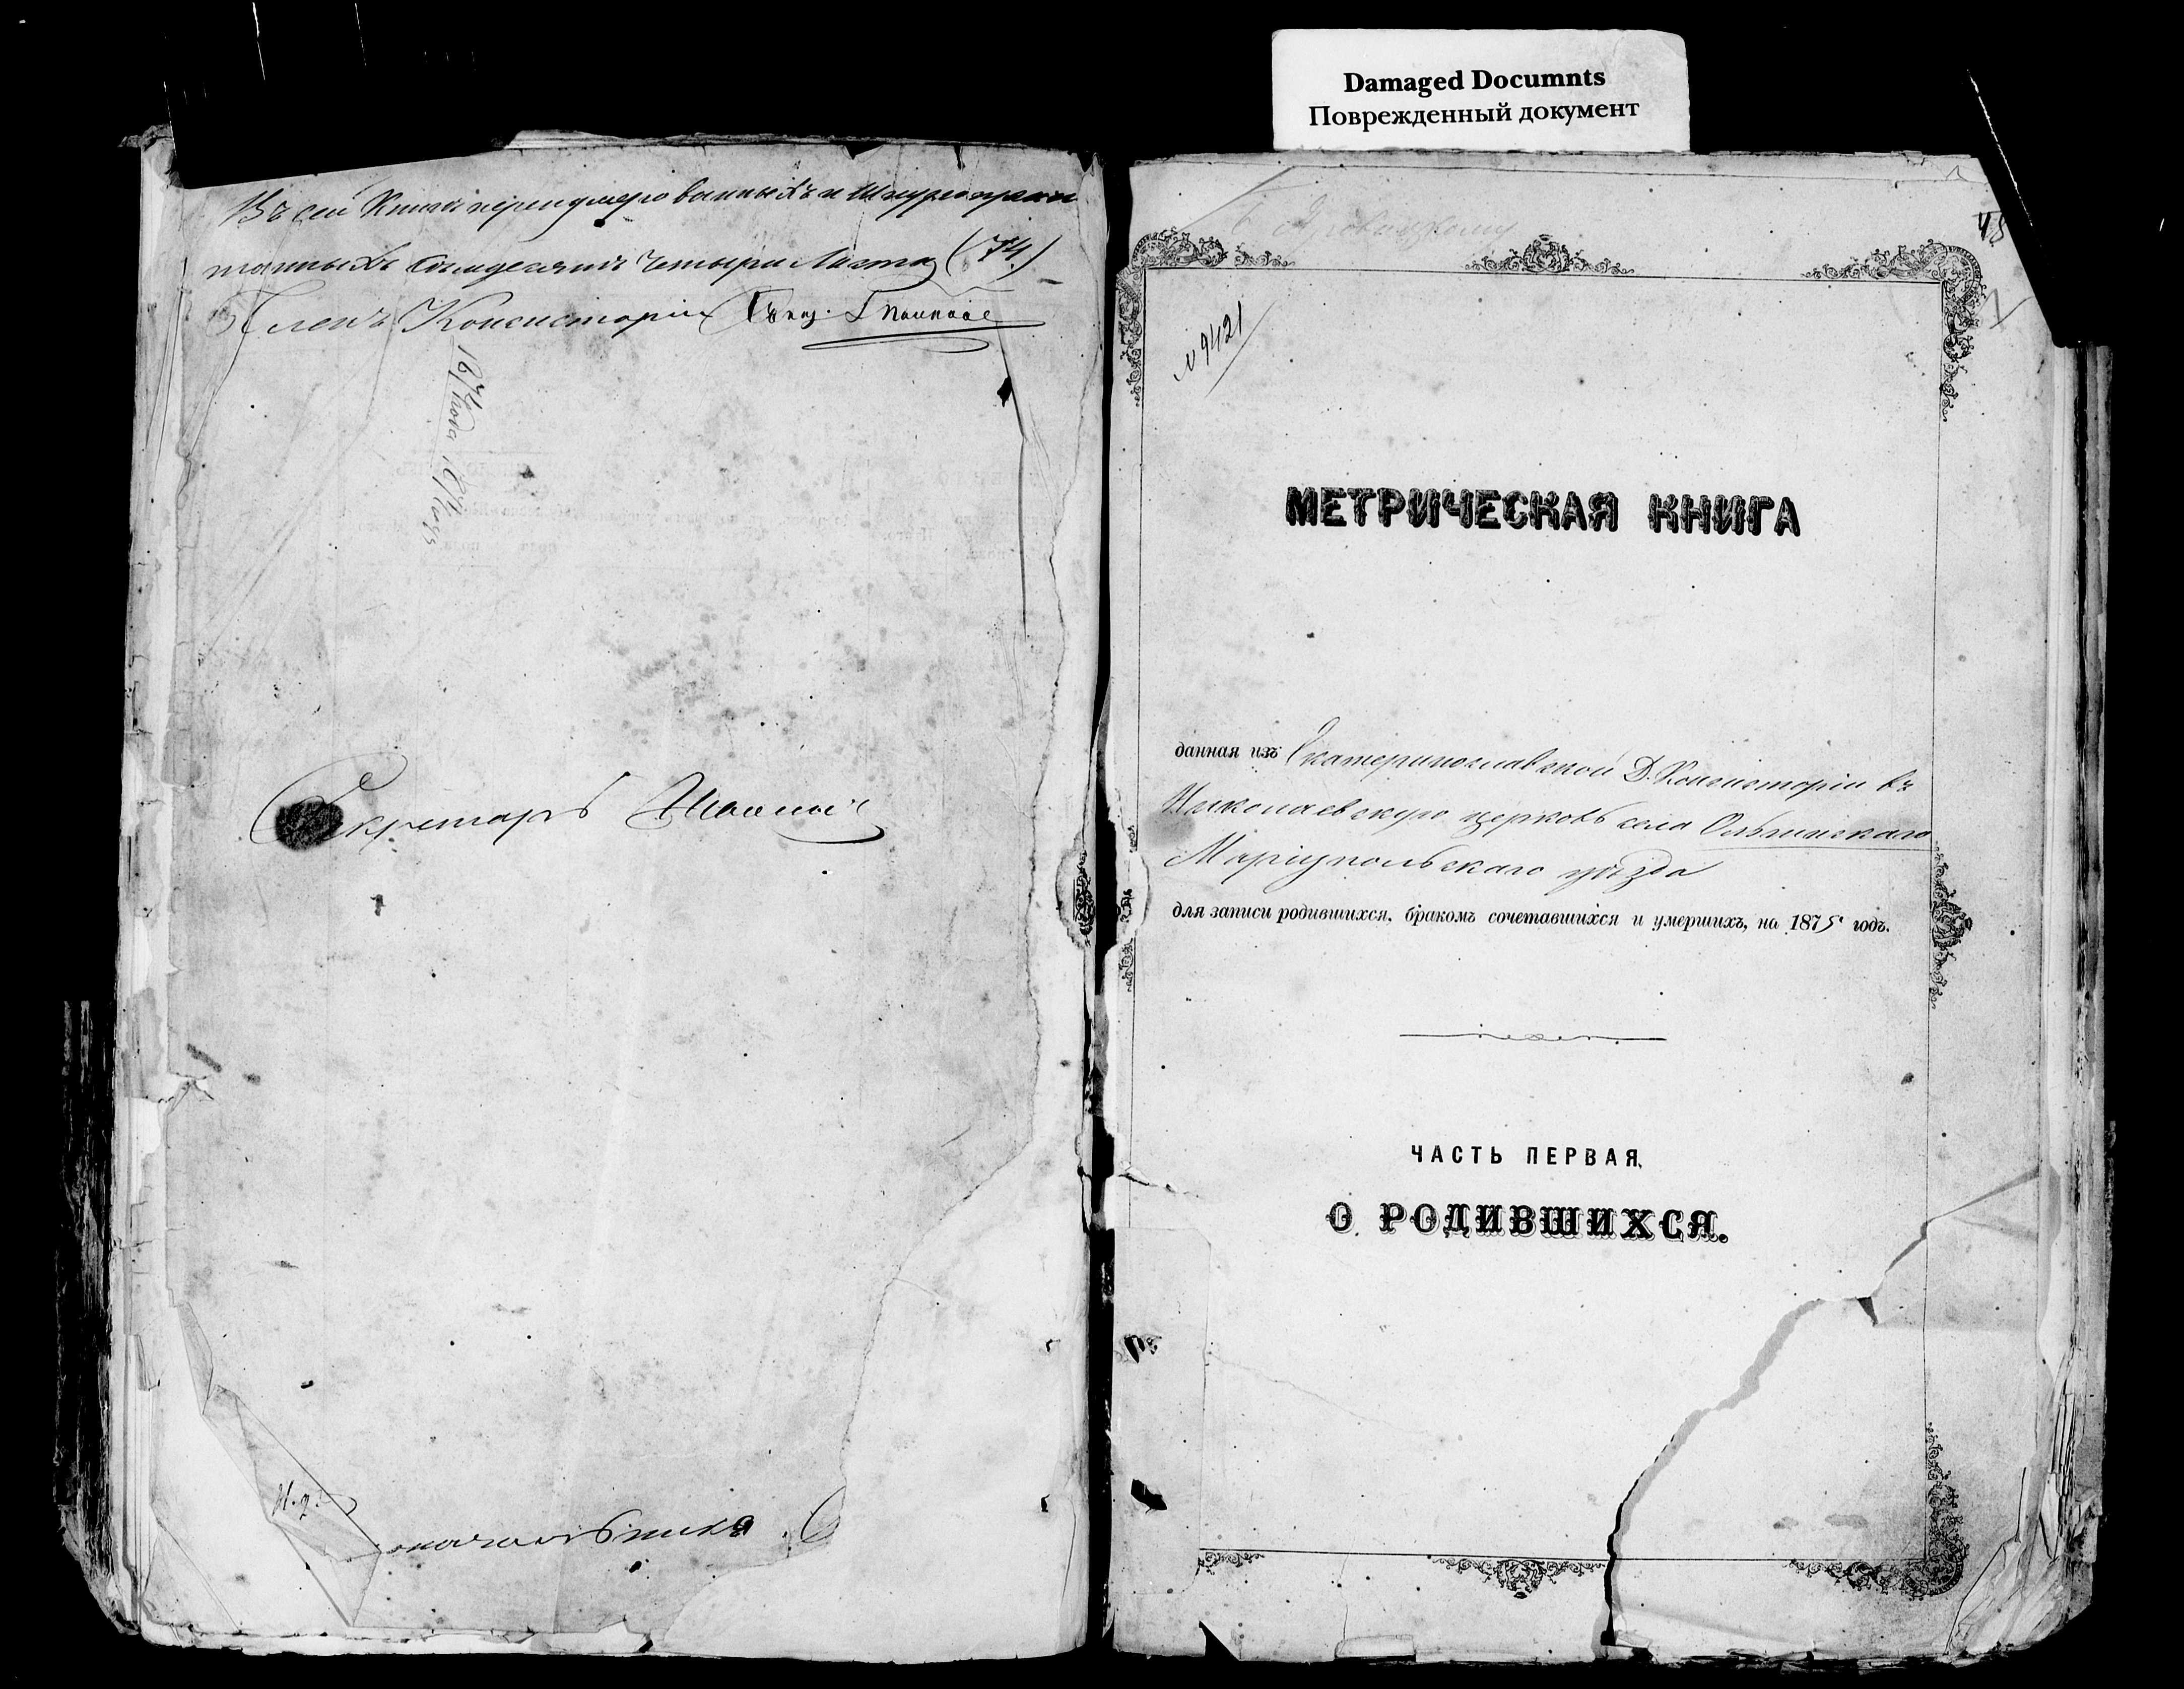 Damaged Documnts
Поврежденный документ
Въ сей Книги перенумерованныхъ и шнуропри
танныхъ семдесятъ четыри Листа (74)
Членъ Консисторіи Свящ.
1874 года
Секретарь
И. д.
оначальника
48
№ 9421
МЕТРИЧЕСКАЯ КНИГА
данная изъ Екатеринославской Д. Консисторіи въ
Николаевскую церковь села Ольгинскаго
Маріупольскаго уѣзда
для записи родившихся, бракомъ сочетавшихся и умершихъ, на 1875 годъ.
ЧАСТЬ ПЕРВАЯ.
О РОДИВШИХСЯ.